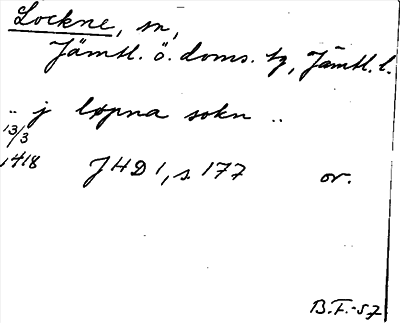 Lockne, sn,
Jämtl. ö. doms. tg, Jämtl. l.
.. j løpna sokn ..
13/3
1418 JHD 1, s 177 or.
B.F.-57